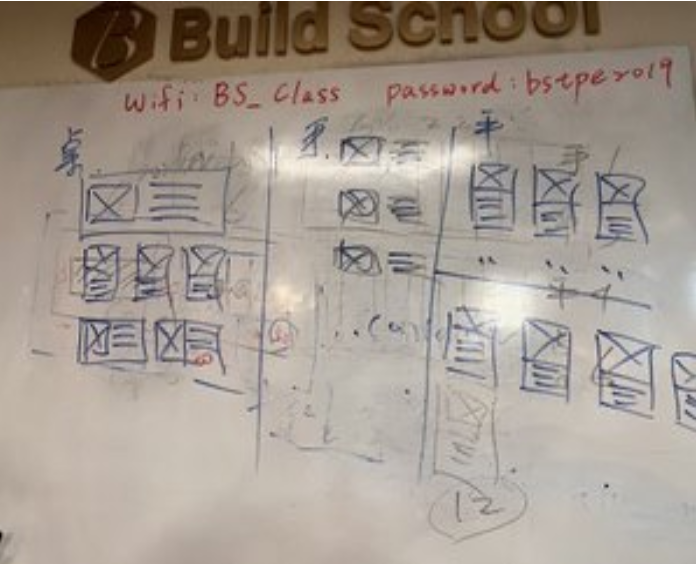 Build School
Wifi: BS_Class password: bstpe2019
桌
手
平
12